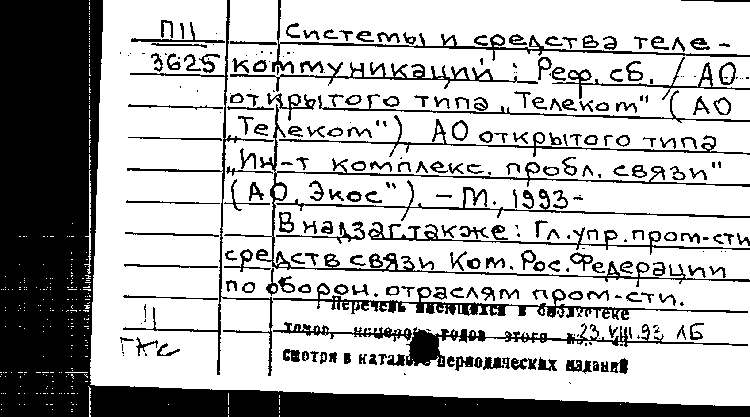 П11 Системы и средства теле-
3625 коммуникаций : Реф. сб. / АО
открытого типа „Телеком" (АО
„Телеком"), АО открытого типа
„Ин-т комплекс. пробл. связи"
(АО „Экос"). – М., 1993-
В надзаг. также: Гл. упр. пром-сти
средств связи Ком. Рос. Федерации
по оборон. отраслям пром-сти.
Перечень имеющихся в библиотеке
томов, номеров, годов этого 23.VIII.93 ЛБ
смотри в каталоге периодических изданий